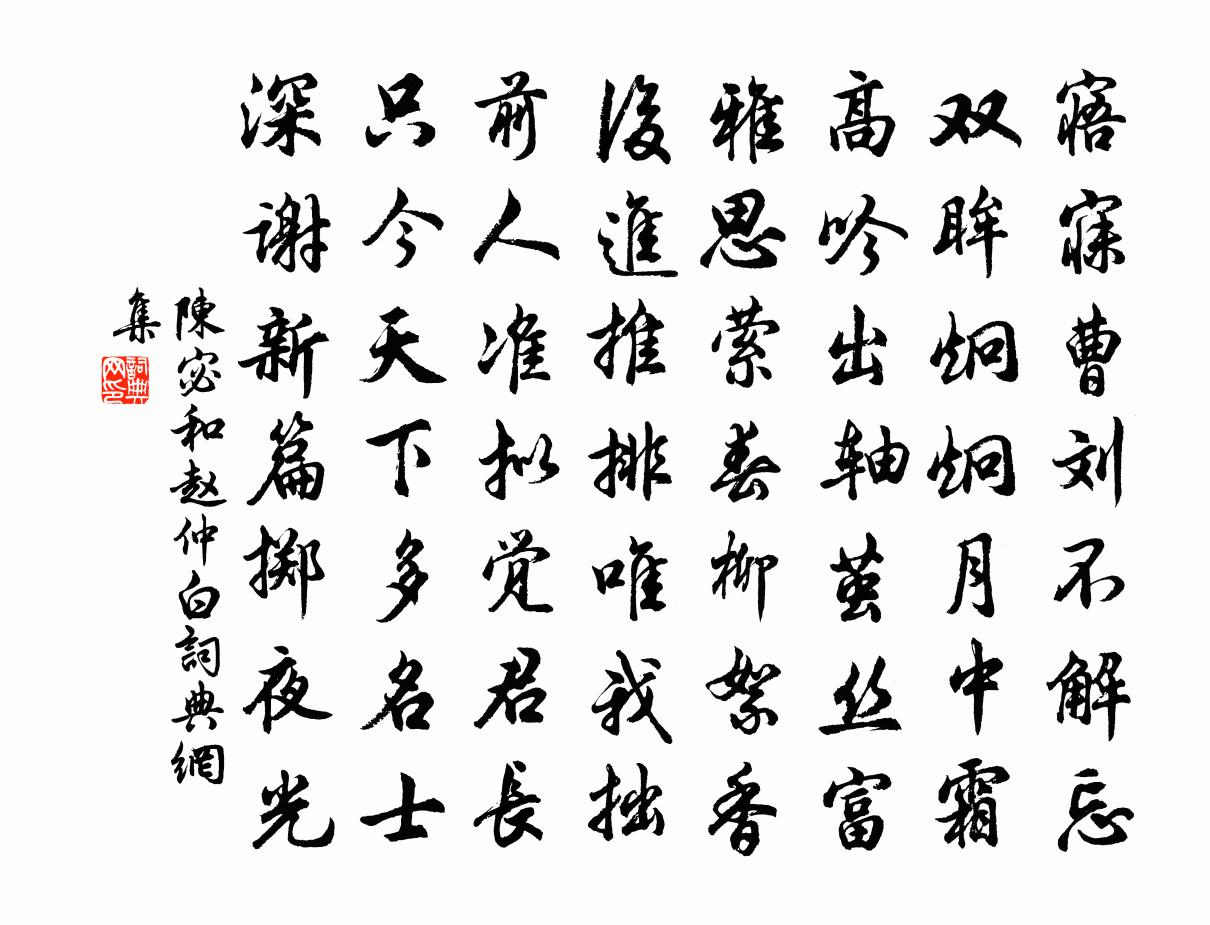 寤寐曹刘不解忘
双眸炯炯月中霜
高吟出轴茧丝富
雅思萦春柳絮香
後進推排唯我拙
前人准拟觉君長
只今天下多名士
深谢新篇掷夜光
陳宓和赵仲白詞典網
集
詞典
网印